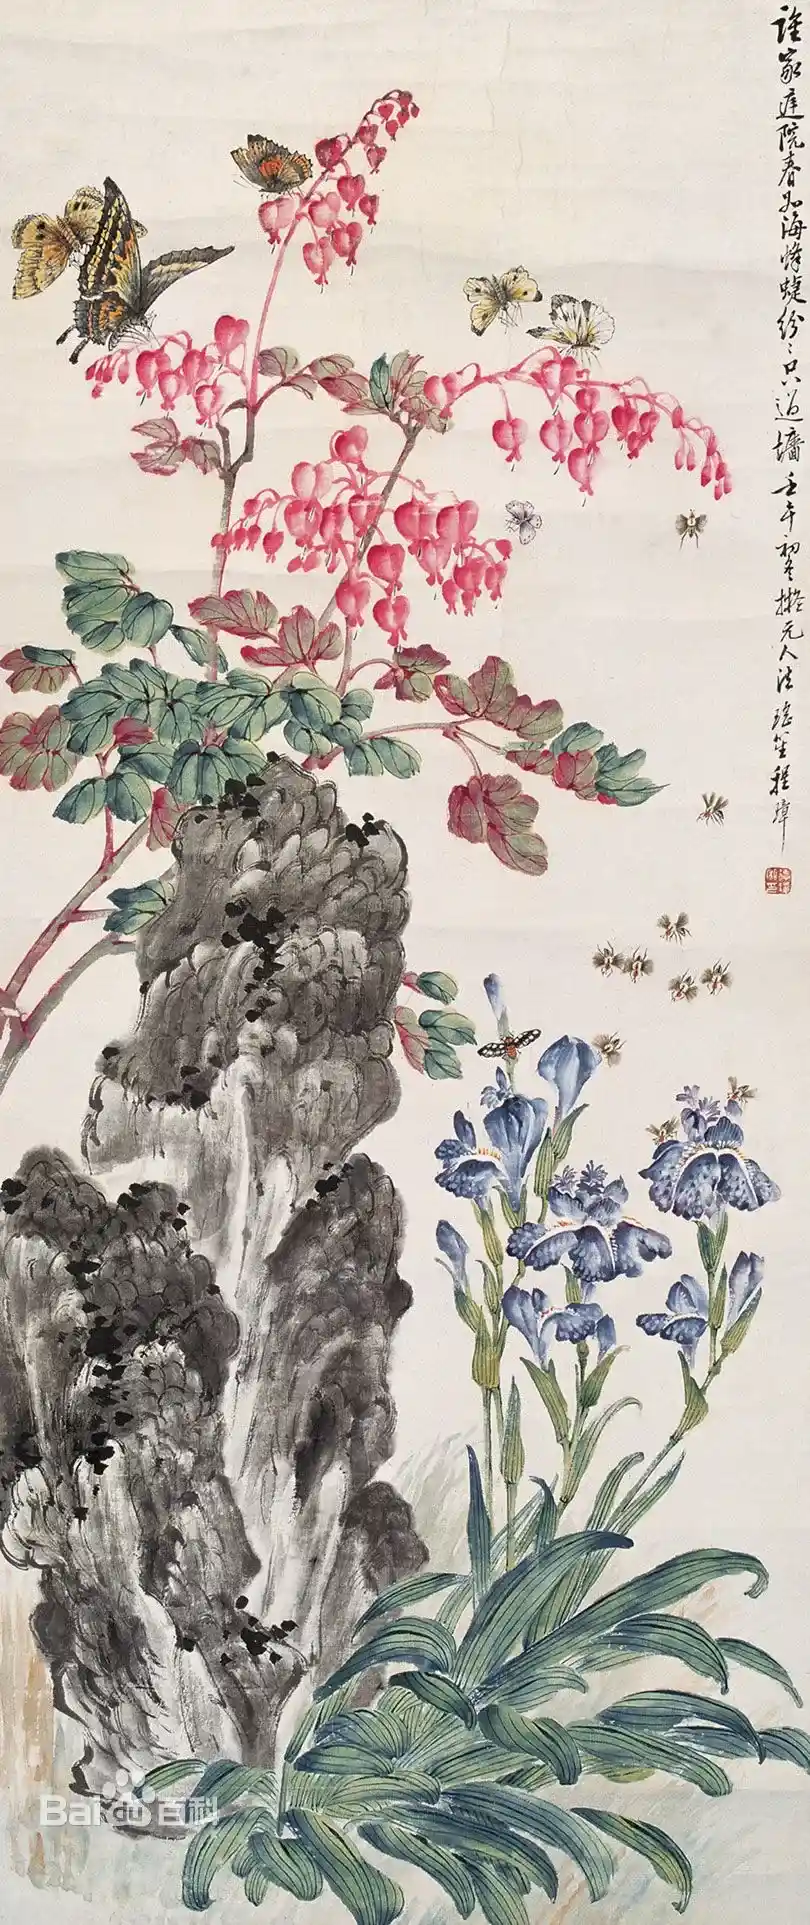 誰家庭院春如海蜂蝶紛〻只過墻壬午初擬元人法瑤笙程璋
Bai 百科